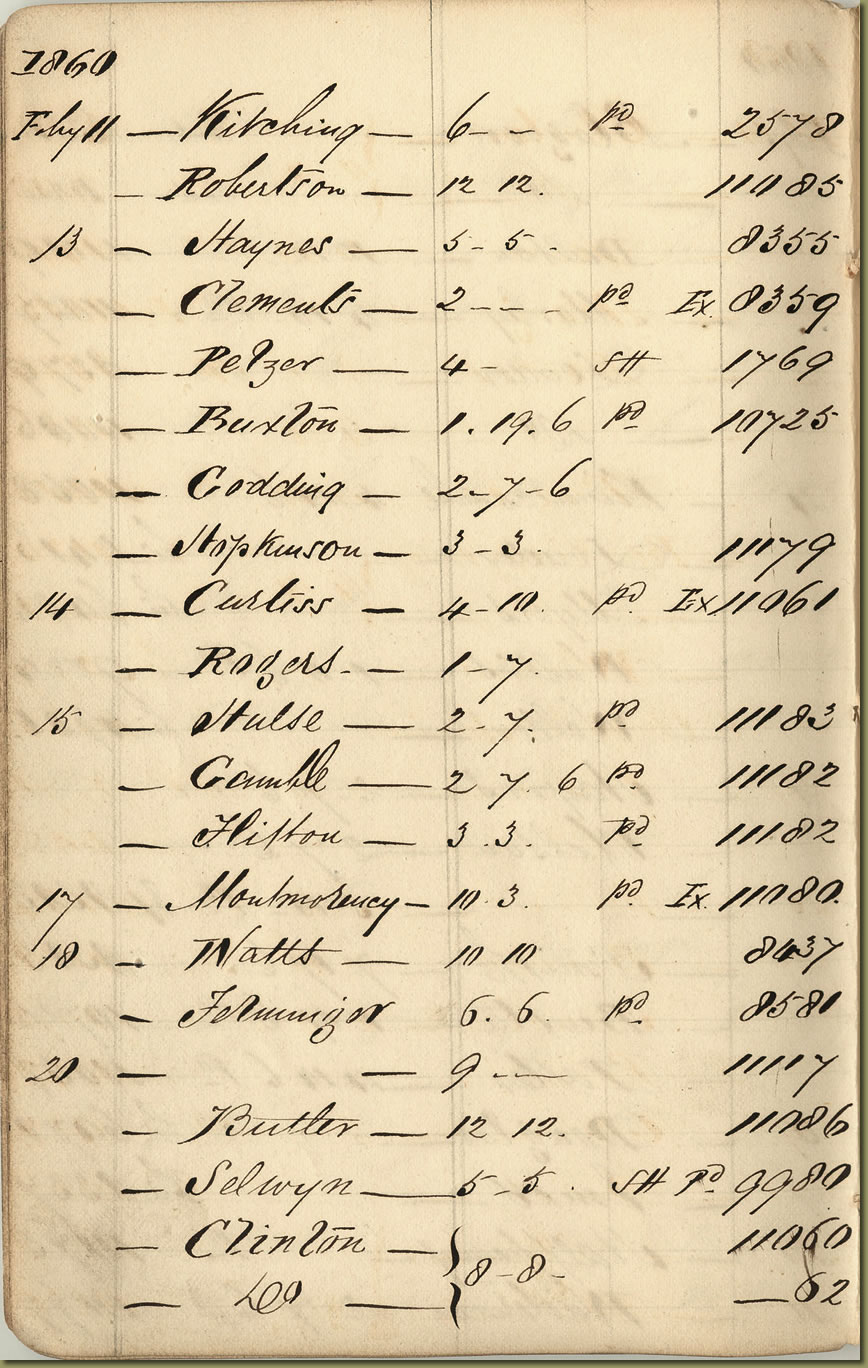 1860
Feby 11 — Kitching — 6 - - pd 2578
— Robertson — 12 12. 11085
13 — Haynes — 5 - 5 - 8355
— Clements — 2 - - - pd Ex. 8359
— Pelzer — 4 - SH 1769
— Buxton — 1. 19. 6 pd 10725
— Codding — 2 - 7 - 6
— Hopkinson — 3 - 3. 11179
14 — Curtiss — 4 - 10. pd Ex 11061
— Rogers. — 1 - 7.
15 — Hulse — 2 - 7. pd 11183
— Gamble — 2 7. 6 pd 11182
— Flitton — 3. 3. pd 11182
17 — Montmorency — 10. 3. pd Ex. 11080.
18 — Watts — 10 10 8437
— 6. 6. pd 8581
20 — — 9 - — 11117
— Butler — 12 12. 11086
— Selwyn — 5 - 5. SH Pd 9980
— Clinton — 11060
— Do — } 8 - 8 - — 62